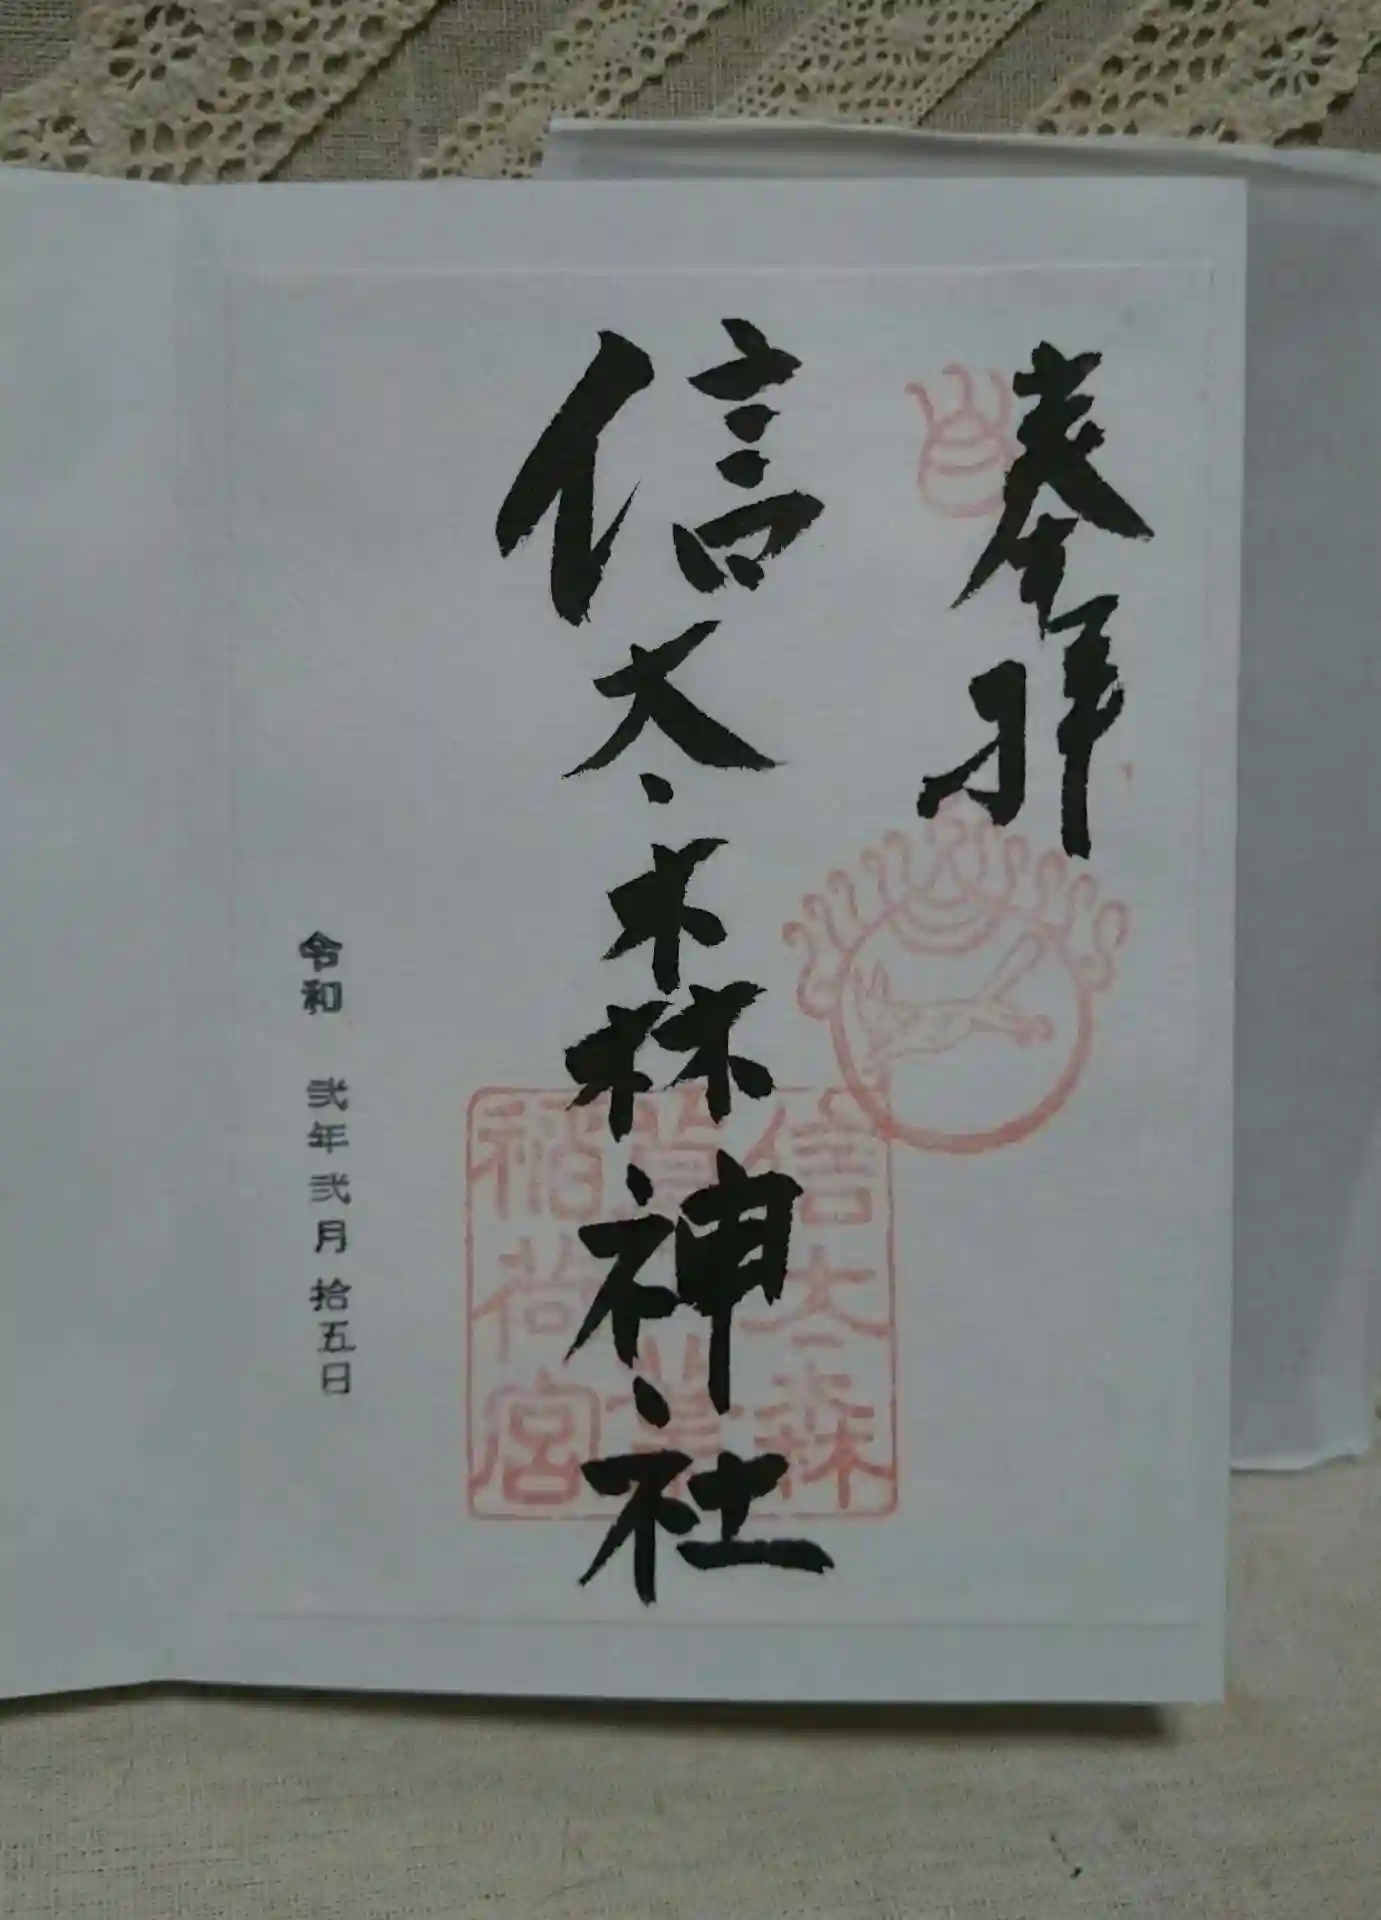 奉拝
信太森神社
信太森
葛葉
稲荷宮
令和 弐年弐月拾五日